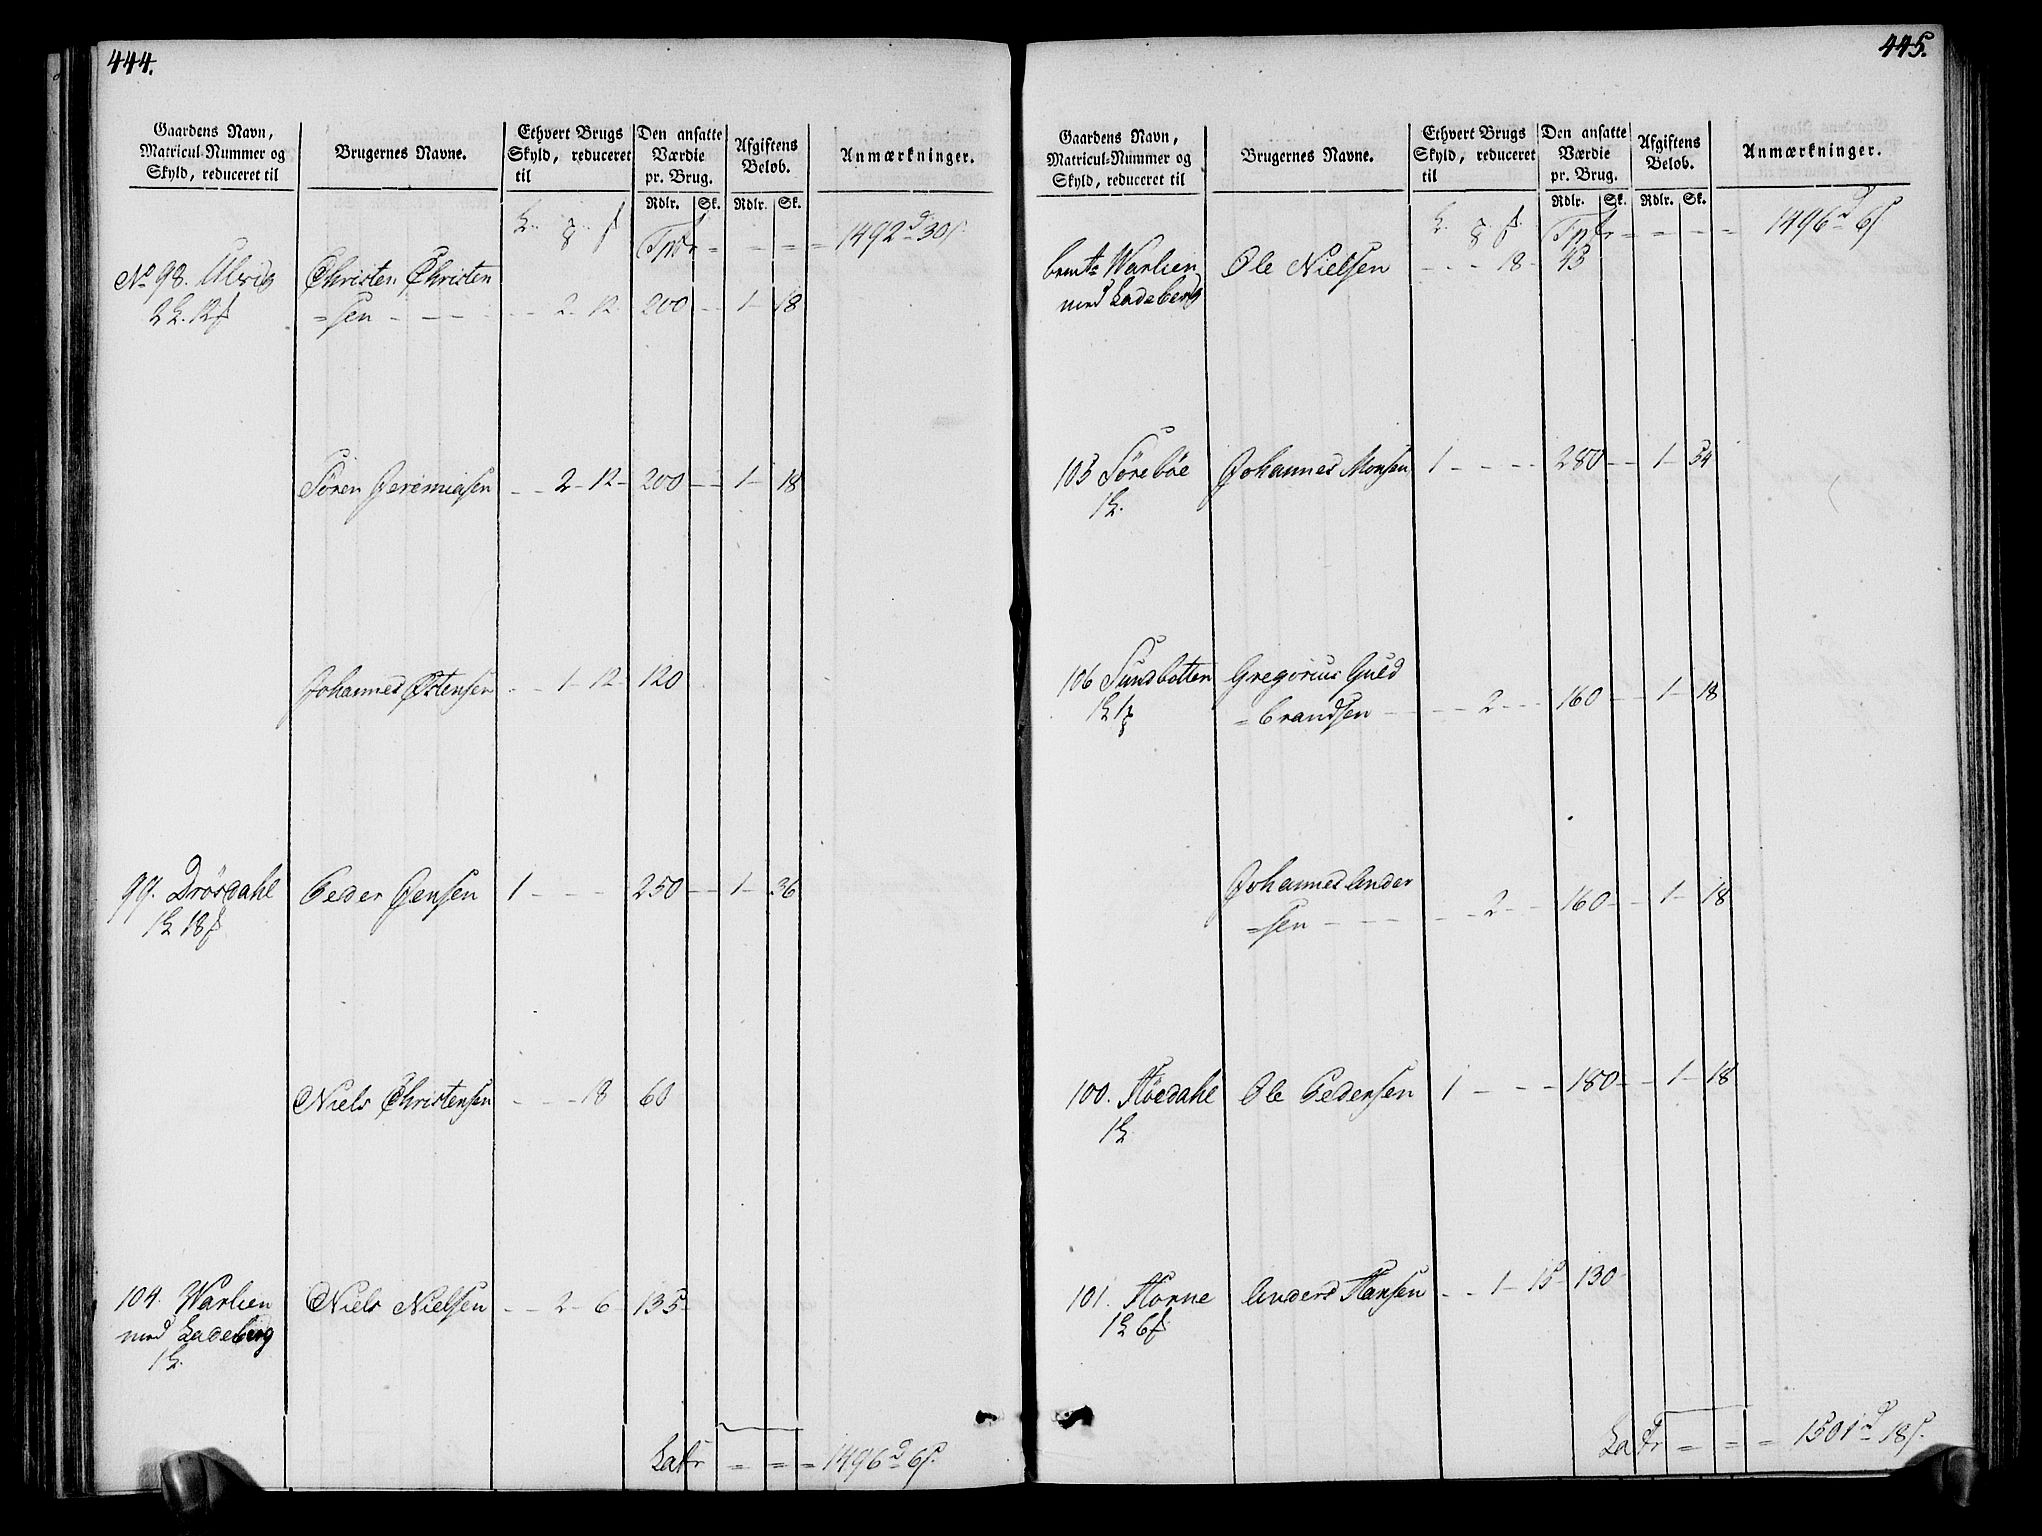 444.
Gaardens Navn,
Matricul-Nummer og
Skyld, reduceret til
Brugernes Navne.
Ethvert Brugs
Skyld, reduceret
til
Den ansatte
Værdie
pr. Brug.
Afgiftens
Beløb.
Anmærkninger.
Rdlr. Sk. Rdlr. Sk.
1492 30
No 98. Ulvrig Christen Christen
=sen - - - - - 2 - 12 200 - - 1 - 18
Søren Jeremiasen - - 2 - 12 - 200 - - 1 - 18
Johannes Østensen - - 1 - 12 - 120
99. Drösdahl Peder Jensen 1 - - - 250 - - 1 - 36
Niels Christensen - - - 18 60
104. Warlien Niels Nielsen - - 2 - 6 - 135
med Ladeberg
Latr = = = 1496 6
445.
Gaardens Navn,
Matricul-Nummer og
Skyld, reduceret til
Brugernes Navne.
Ethvert Brugs
Skyld, reduceret
til
Den ansatte
Værdie
pr. Brug.
Afgiftens
Beløb.
Anmærkninger.
Rdlr. Sk. Rdlr. Sk.
1496 6
Warlien Ole Nielsen - - - 18 - 45
med Ladeberg
105 Sørebøe Johannes Monsen 1 - - - - 280 - - 1 - 54
106 Sundbotten Gregorius Guld
=brandsen - - - 2 - - - 160 - - 1 - 18
Johannes Ander
=sen - - - - - 2 - - 160 - - 1 - 18
100. Høedahl Ole Pedersen 1 - - - - 180 - - 1 - 18
101. Horne Anders Hansen - - 1 - 15 - 130
Latr = = = 1501 18